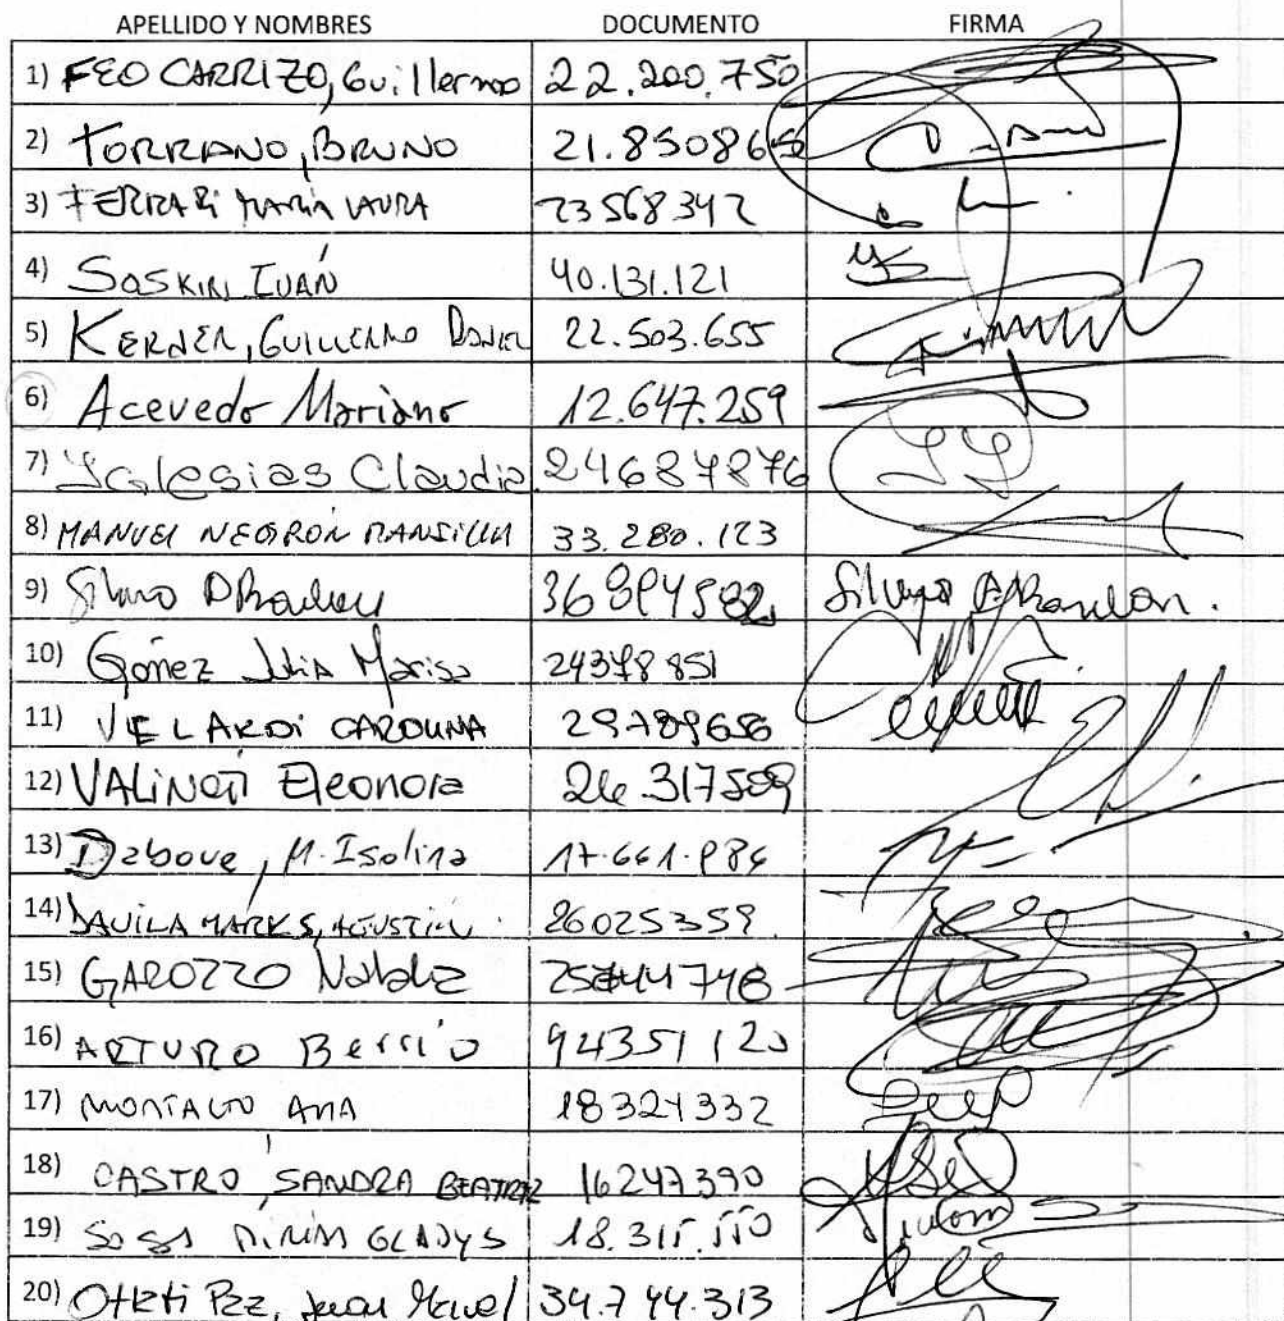 APELLIDO Y NOMBRES DOCUMENTO FIRMA
1) FEO CARRIZO, Guillermo 22.200.750
2) TORRANO, BRUNO 21.850865
3) FERRARI MARÍA LAURA 23568342
4) SOSKIN IVÁN 40.131.121
5) KERNER, GUILLERMO DANIEL 22.503.655
6) Acevedo Mariano 12.647.259
7) Yglesias Claudia 24687876
8) MANUEL NEGRÓN MANSILLA 33.280.123
9)
10) Gómez Julia Marisa 24378851
11) VELARDI CAROLINA 29789656
12) VALINOTI Eleonora 26.317509
13) Dabove, M. Isolina 17.661.986
14) DAVILA MARKS, AGUSTIN 26025359
15) GAROZZO Natalia
16) ARTURO Berrio 94351120
17) MONTALTO ANA 18324332
18) CASTRO, SANDRA BEATRIZ 16247390
19) Sosa MIRIAM GLADYS 18.315.550
20) Juan Manuel 34.744.313